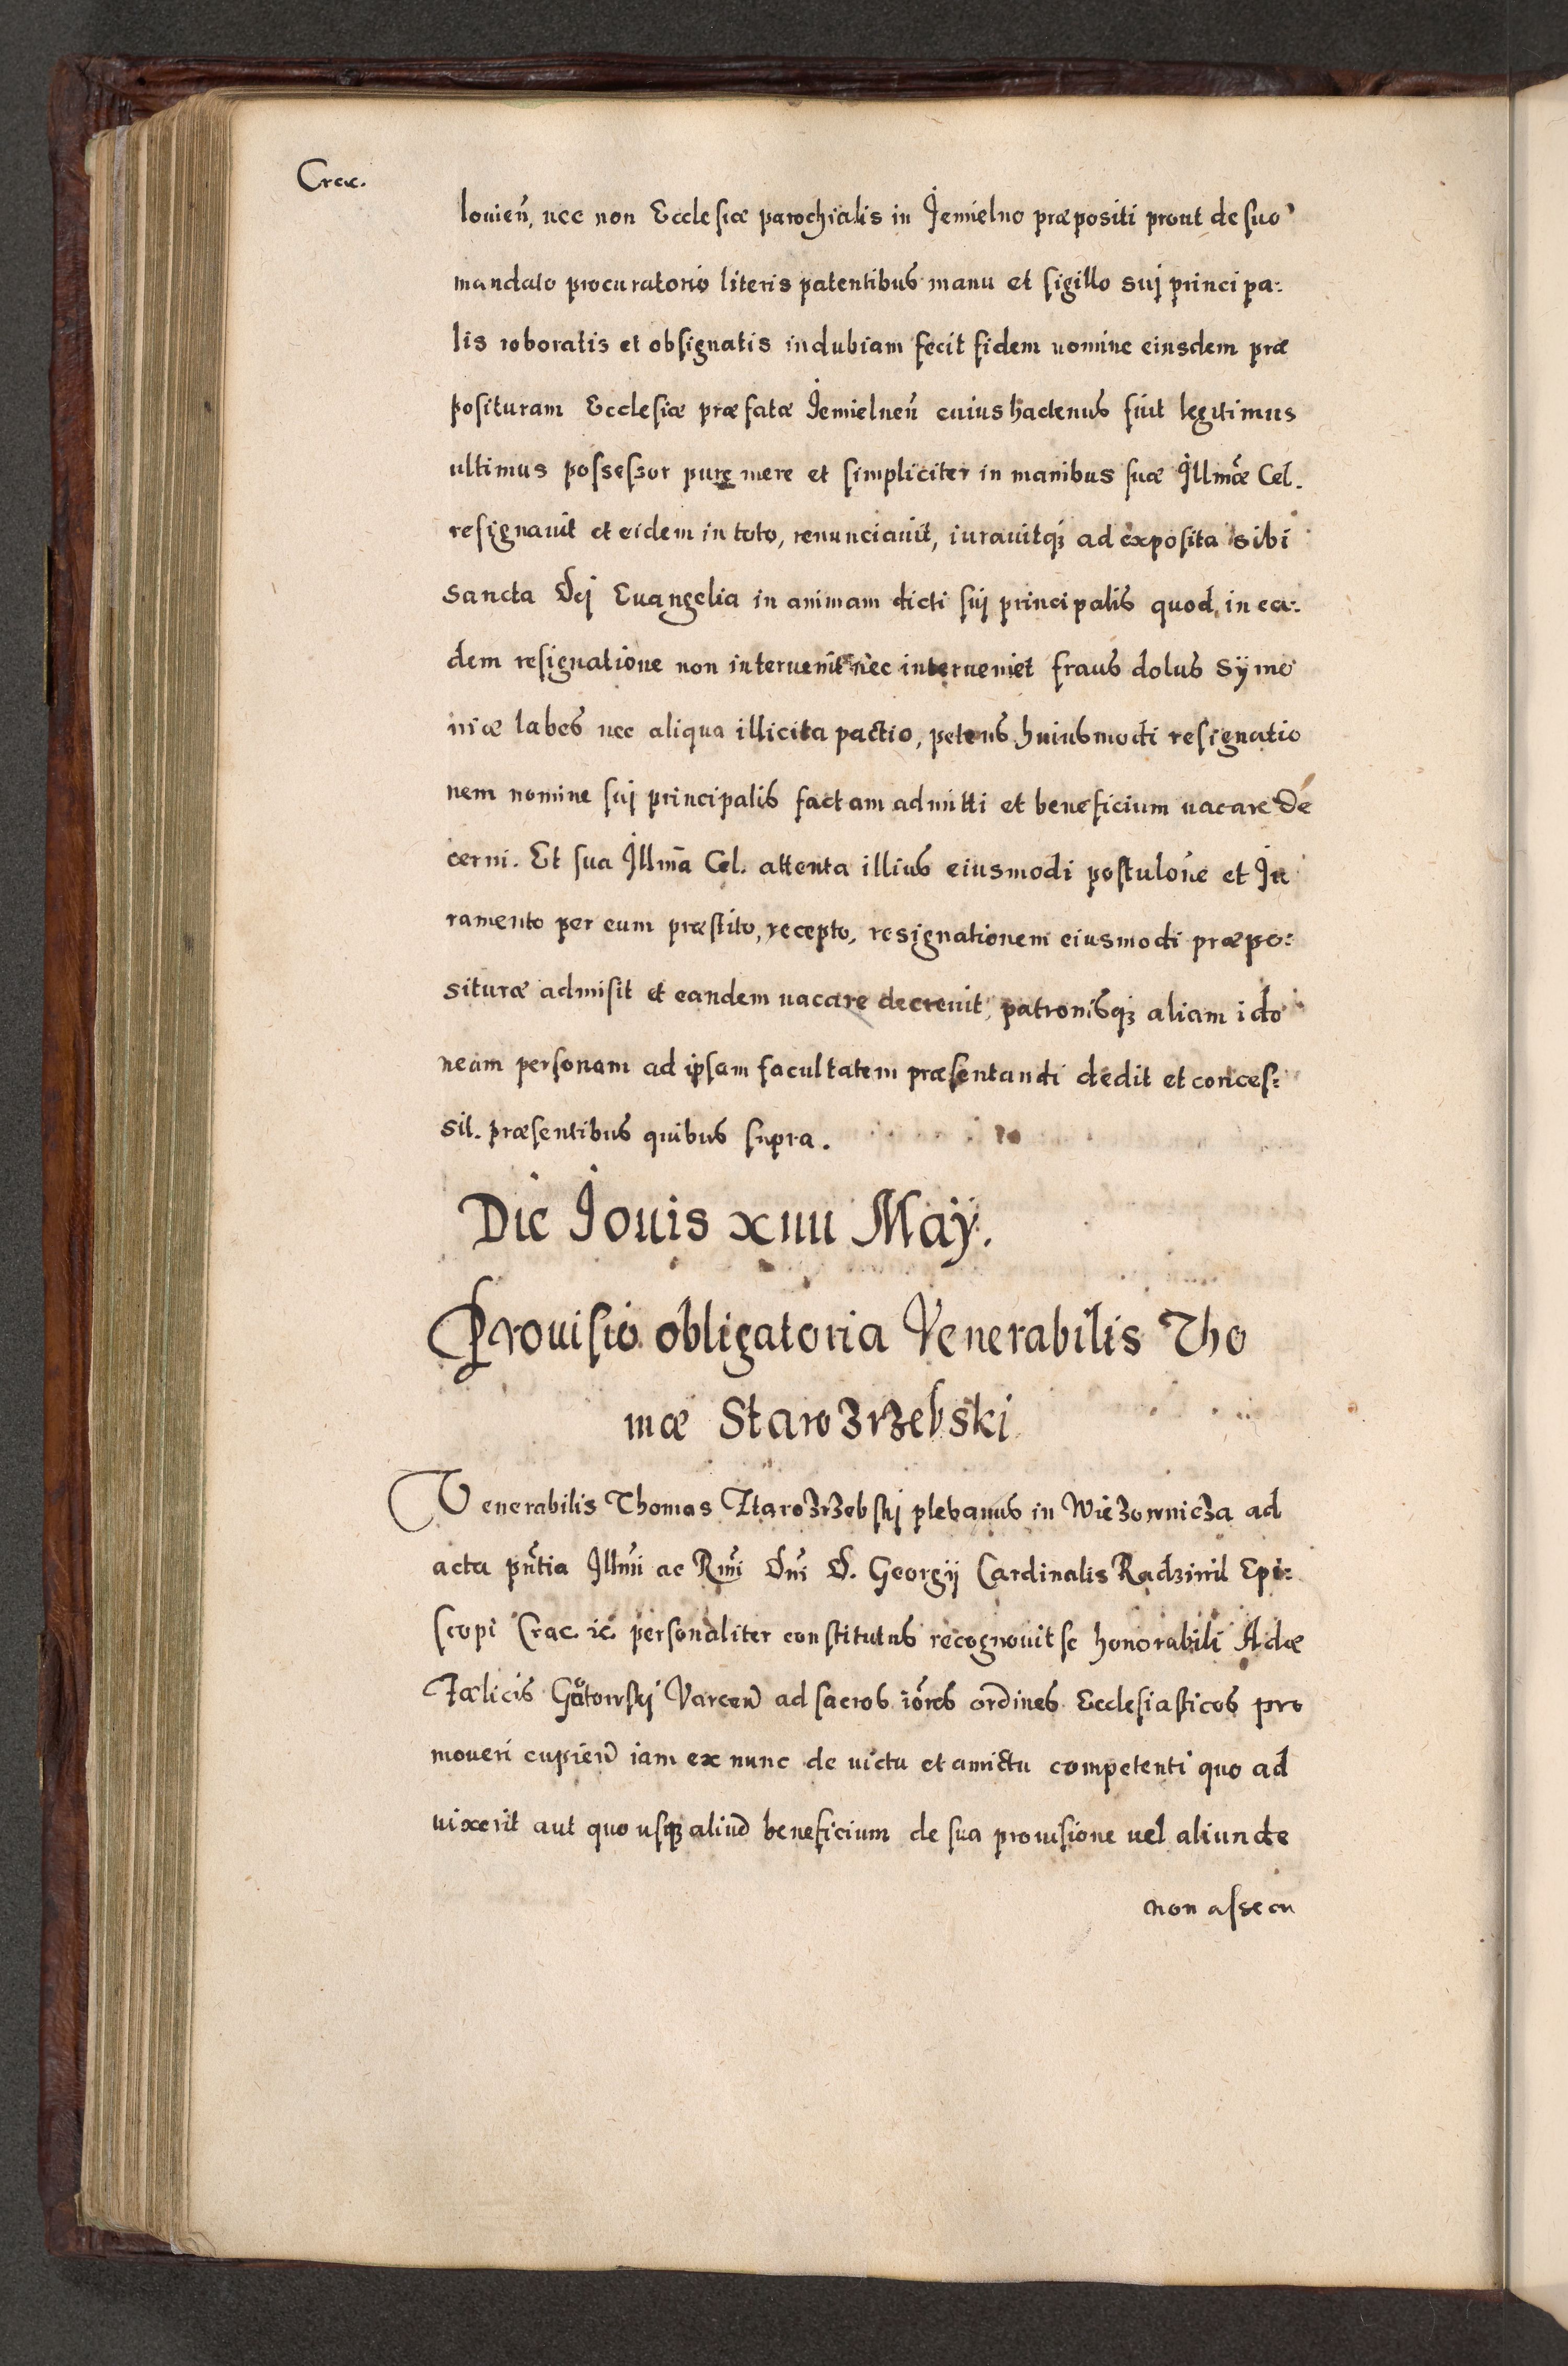 Crac.
louien̄, nec non Ecclesiæ parochialis in Jemielno præpositi prout de suo
mandato procuratorio literis patentibus manu et sigillo suj principa:
lis roboratis et obsignatis indubiam fecit fidem nomine eiusdem præ
posituram Ecclesiæ præfatæ Jemielnen̄ cuius hactenus fuit legitimus
ultimus possessor pure mere et simpliciter in manibus suæ Illmæ Cel.
resignauit et eidem in toto, renunciauit, iurauitqȝ ad exposita sibi
sancta Dej Euangelia in animam dicti suj principalis quod in ea:
dem resignatione non interuenit nec interueniet fraus dolus Sÿmo
niæ labes nec aliqua illicita pactio, petens huiusmodi resignatio
nem nomine suj principalis factam admitti et beneficium uacare de
cerni. Et sua Illm̄a Cel. attenta illius eiusmodi postulōne et Ju
ramento per eum præstito, recepto, resignationem eiusmodi præpo:
situræ admisit et eandem uacare decreuit, patronisqȝ aliam ido
neam personam ad ipsam facultatem præsentandi dedit et conces:
sit. præsentibus quibus supra.
Die Jouis xiiii Maÿ.
Prouisio obligatoria Venerabilis Tho
mæ Starozrzebski
Venerabilis Thomas Starozrzebskj plebanus in Wiezownicza ad
acta pn̄tia Illmi ac Rmi Dni D. Georgij Cardinalis Radziwil Epi:
scopi Crac. ic̄ personaliter constitutus recognouit se honorabili Adæ
Fælicis Gotowskj Varcen̄ ad sacros iōres ordines Ecclesiasticos pro
moueri cupien̄ iam ex nunc de uictu et amictu competenti quo ad
uixerit aut quo usqȝ aliud beneficium de sua prouisione uel aliunde
non assecu